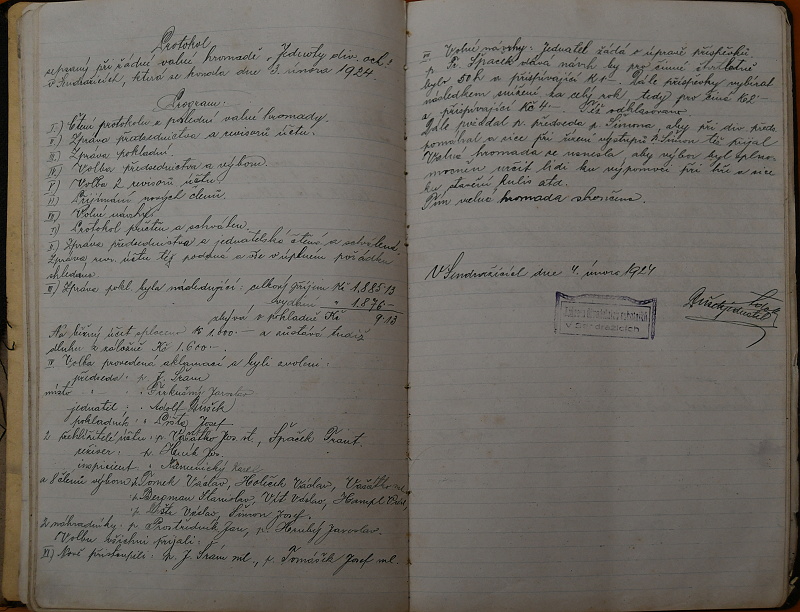 Protokol
sepsaný při řádné valné hromadě "Jednoty div. och."
v Sendražicích, která se konala dne 3. února 1924.
Program:
I.) Čtení protokolu z poslední valné hromady.
II.) Zpráva předsednictva a revisorů účtu.
III.) Zpráva pokladní.
IV.) Volba předsednictva a výboru.
V.) Volba 2 revisorů účtu.
VI.) Přijímání nových členů.
VII.) Volné návrhy.
I.) Protokol přečten a schválen.
II.) Zpráva předsednictva a jednatelská čtena a schválena.
Zpráva rev. účtu též podána a vše v úplném pořádku
shledáno.
III.) Zpráva pokl. byla následující: celkový příjem Kč 1.885·13
vydání " 1.876·–
zbývá v pokladně Kč 9·13
Na běžný účet splaceno Kč 1.000·– a zůstává tudíž
dluhu u záložny Kč 1.600·–
IV. Volba provedena aklamací a byli zvoleni:
předseda: p. J. Šrám
místo " " Jaroslav
jednatel: " Adolf
pokladník: " Lošťá Josef
2 účtu: p. Jos. st., Špaček Frant.
režiser: p. Jos.
inspicient " Kamenický Karel
a 8 členů výboru p. Tomek Václav, Holeček Václav,
p. Bergman Stanislav, Vít Václav, Hampl
p. Václav, Šimon Josef.
2 náhradníky: p. Prostředník Jan, p. Jaroslav.
Volbu všichni přijali.
VI.) Nově přistoupili: p. J. Šrám ml., p. Tomášek Josef ml.
VII. Volné návrhy: Jednatel žádá o úpravě příspěvků.
p. Fr. Špaček dává návrh by pro činné čtvrtletně
bylo 50 h a přispívající Kč 1·– Dále příspěvky vybírat
následkem snížení na celý rok, tedy pro činné Kč 2·–
a přispívající Kč 4·– Též odhlasováno.
Dále požádal p. předseda p. Šimona, aby při div. předs.
pomáhal a sice při řízení výstupů. P. Šimon též přijal
Valná hromada se usnesla, aby výbor byl zplno-
mocněn určit lidi ku výpomoci při hře a sice
ku stavění kulis atd.
Tím valná hromada skončena.
V Sendražicích dne 4. února 1924
v Sendražicích
jednatel